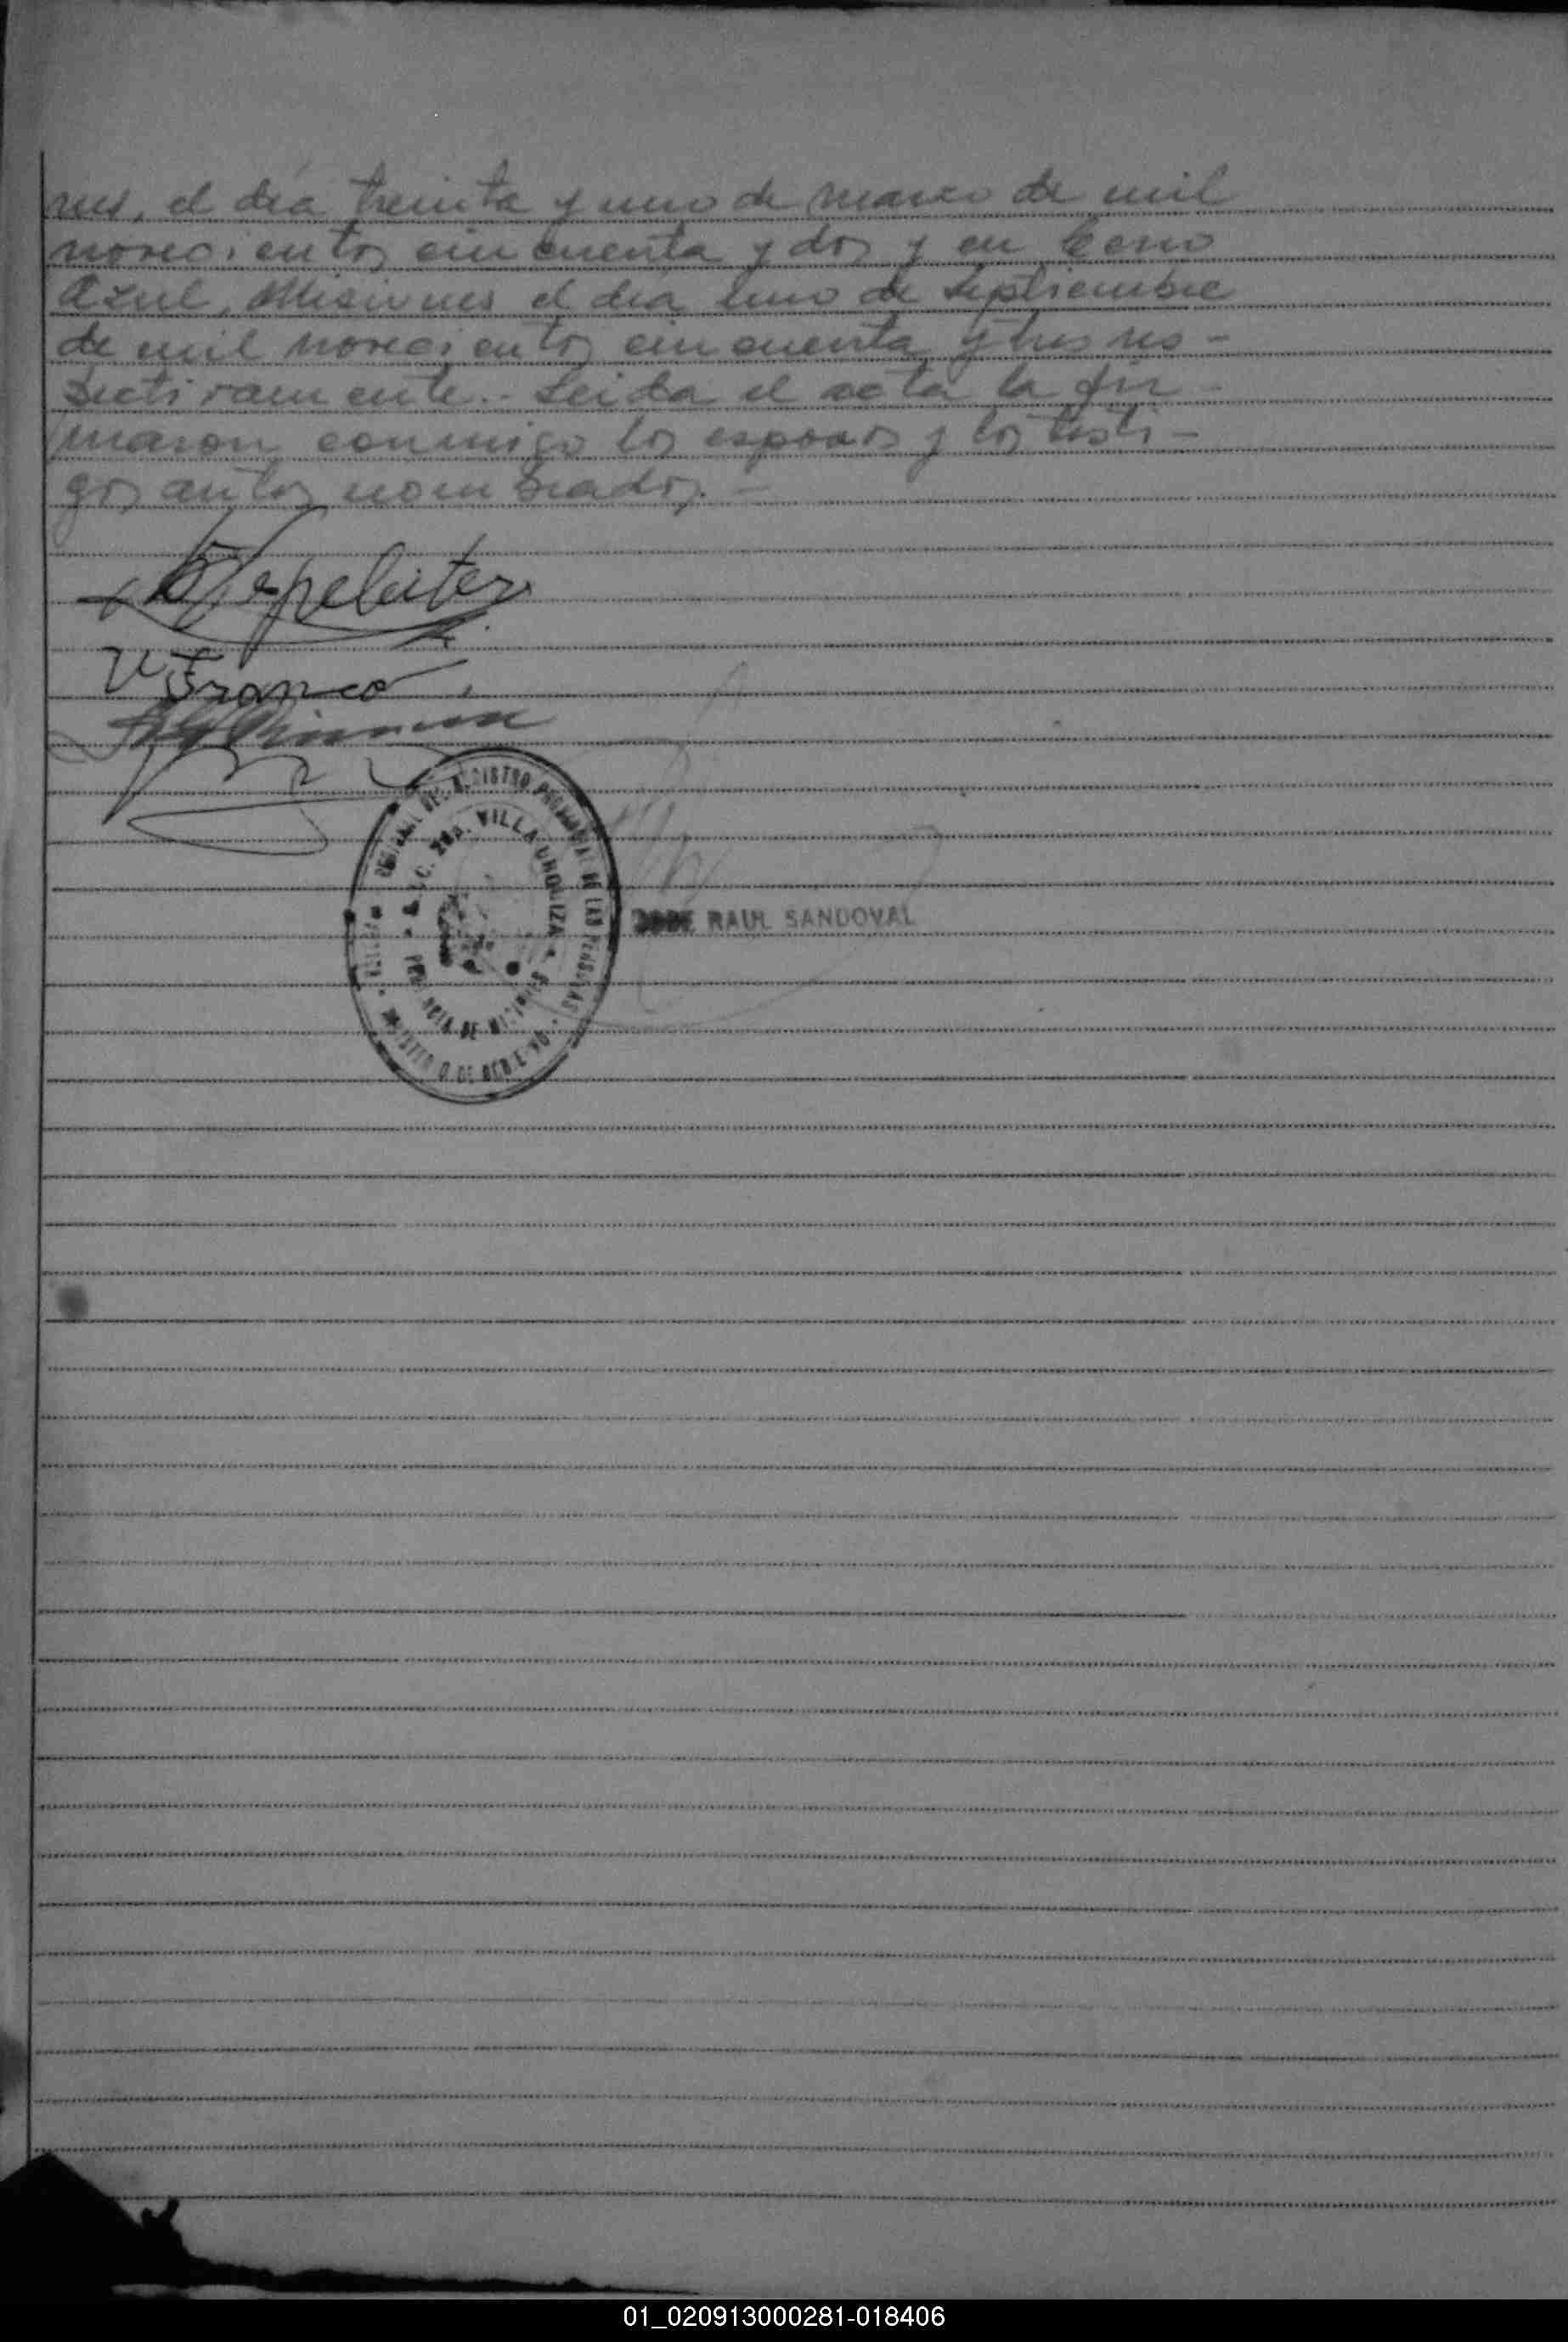 nes, el dia treinta y uno de marzo de mil
novecientos cincuenta y dos y en Cerro
Azul, Misiones el dia uno de septiembre
de mil novecientos cincuenta y tres res-
pectivamente.- Leida el acta la fir-
maron conmigo los esposos y los testi-
gos antes nombrados.-
V Franco
REGISTRO PROVINCIAL DE LAS PERSONAS
VILLA URQUIZA
MINISTERIO DE GOBIERNO
RAUL SANDOVAL
01_020913000281-018406